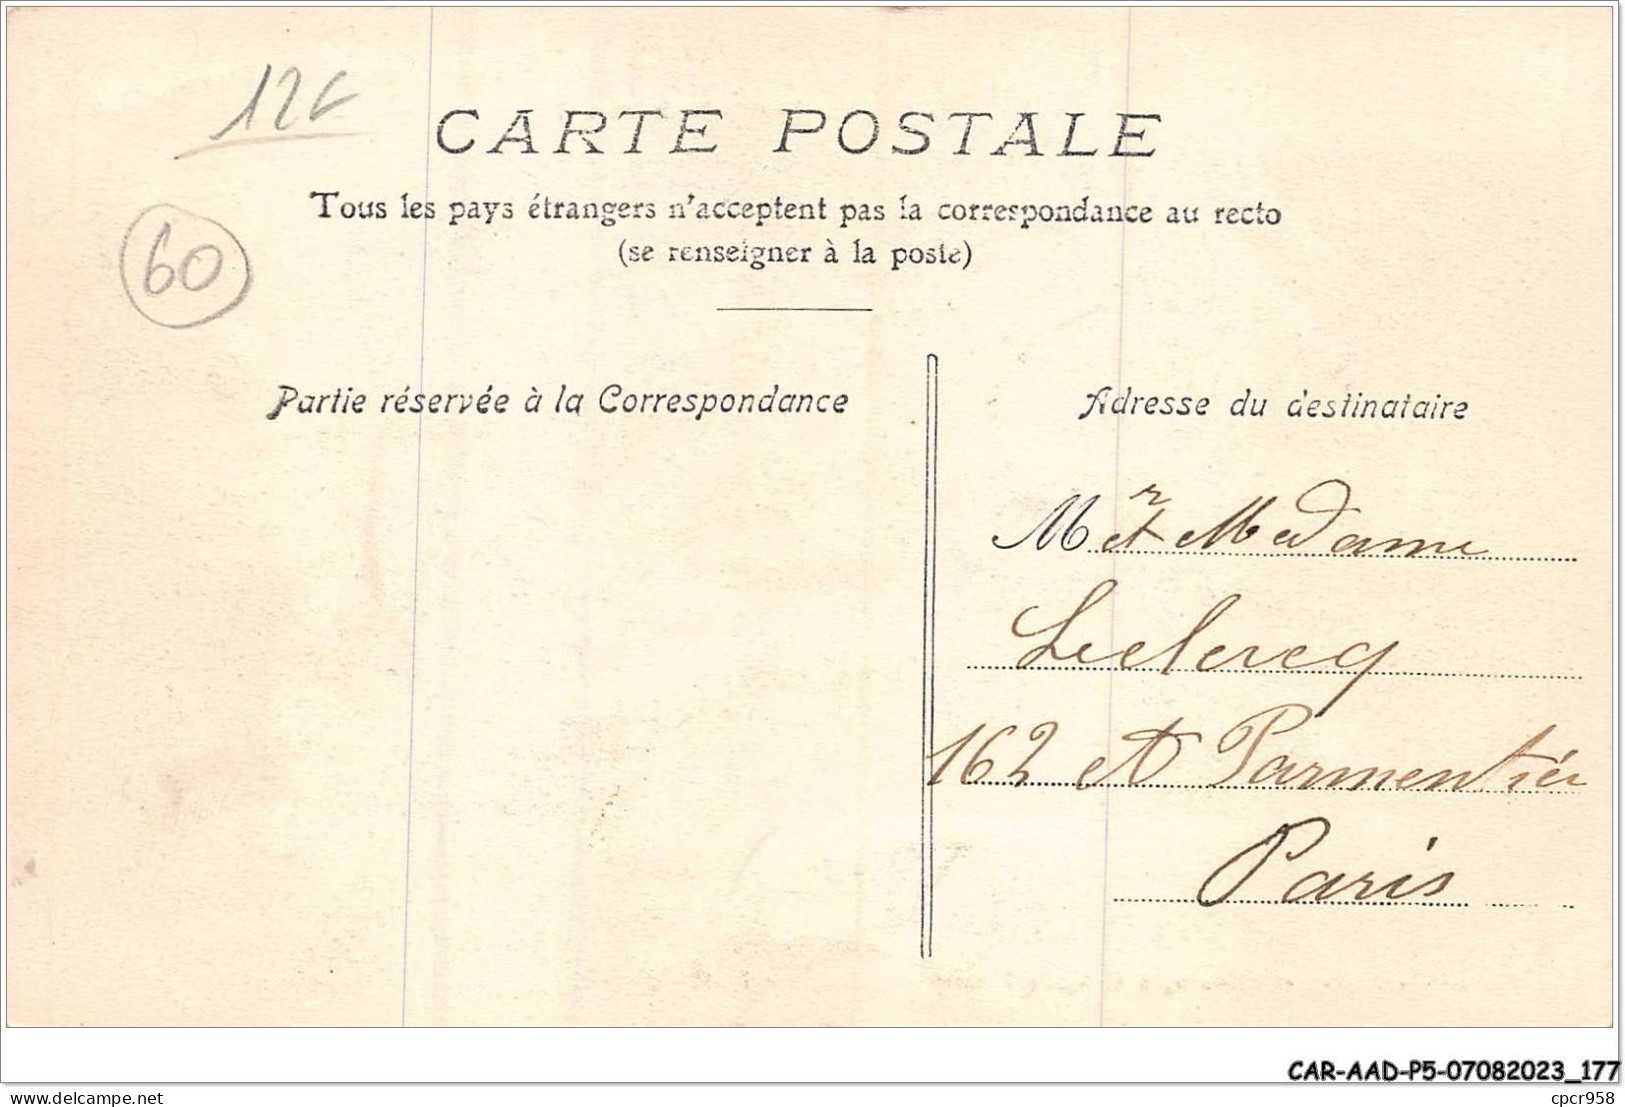 12€
CARTE POSTALE
Tous les pays étrangers n'acceptent pas la correspondance au recto
(se renseigner à la poste)
60
Partie réservée à la Correspondance
Adresse du destinataire
Mr et Madame
Leclercq
162 Parmentier
Paris
CAR-AAD-P5-07082023_177
delcampe.net
cpcr958